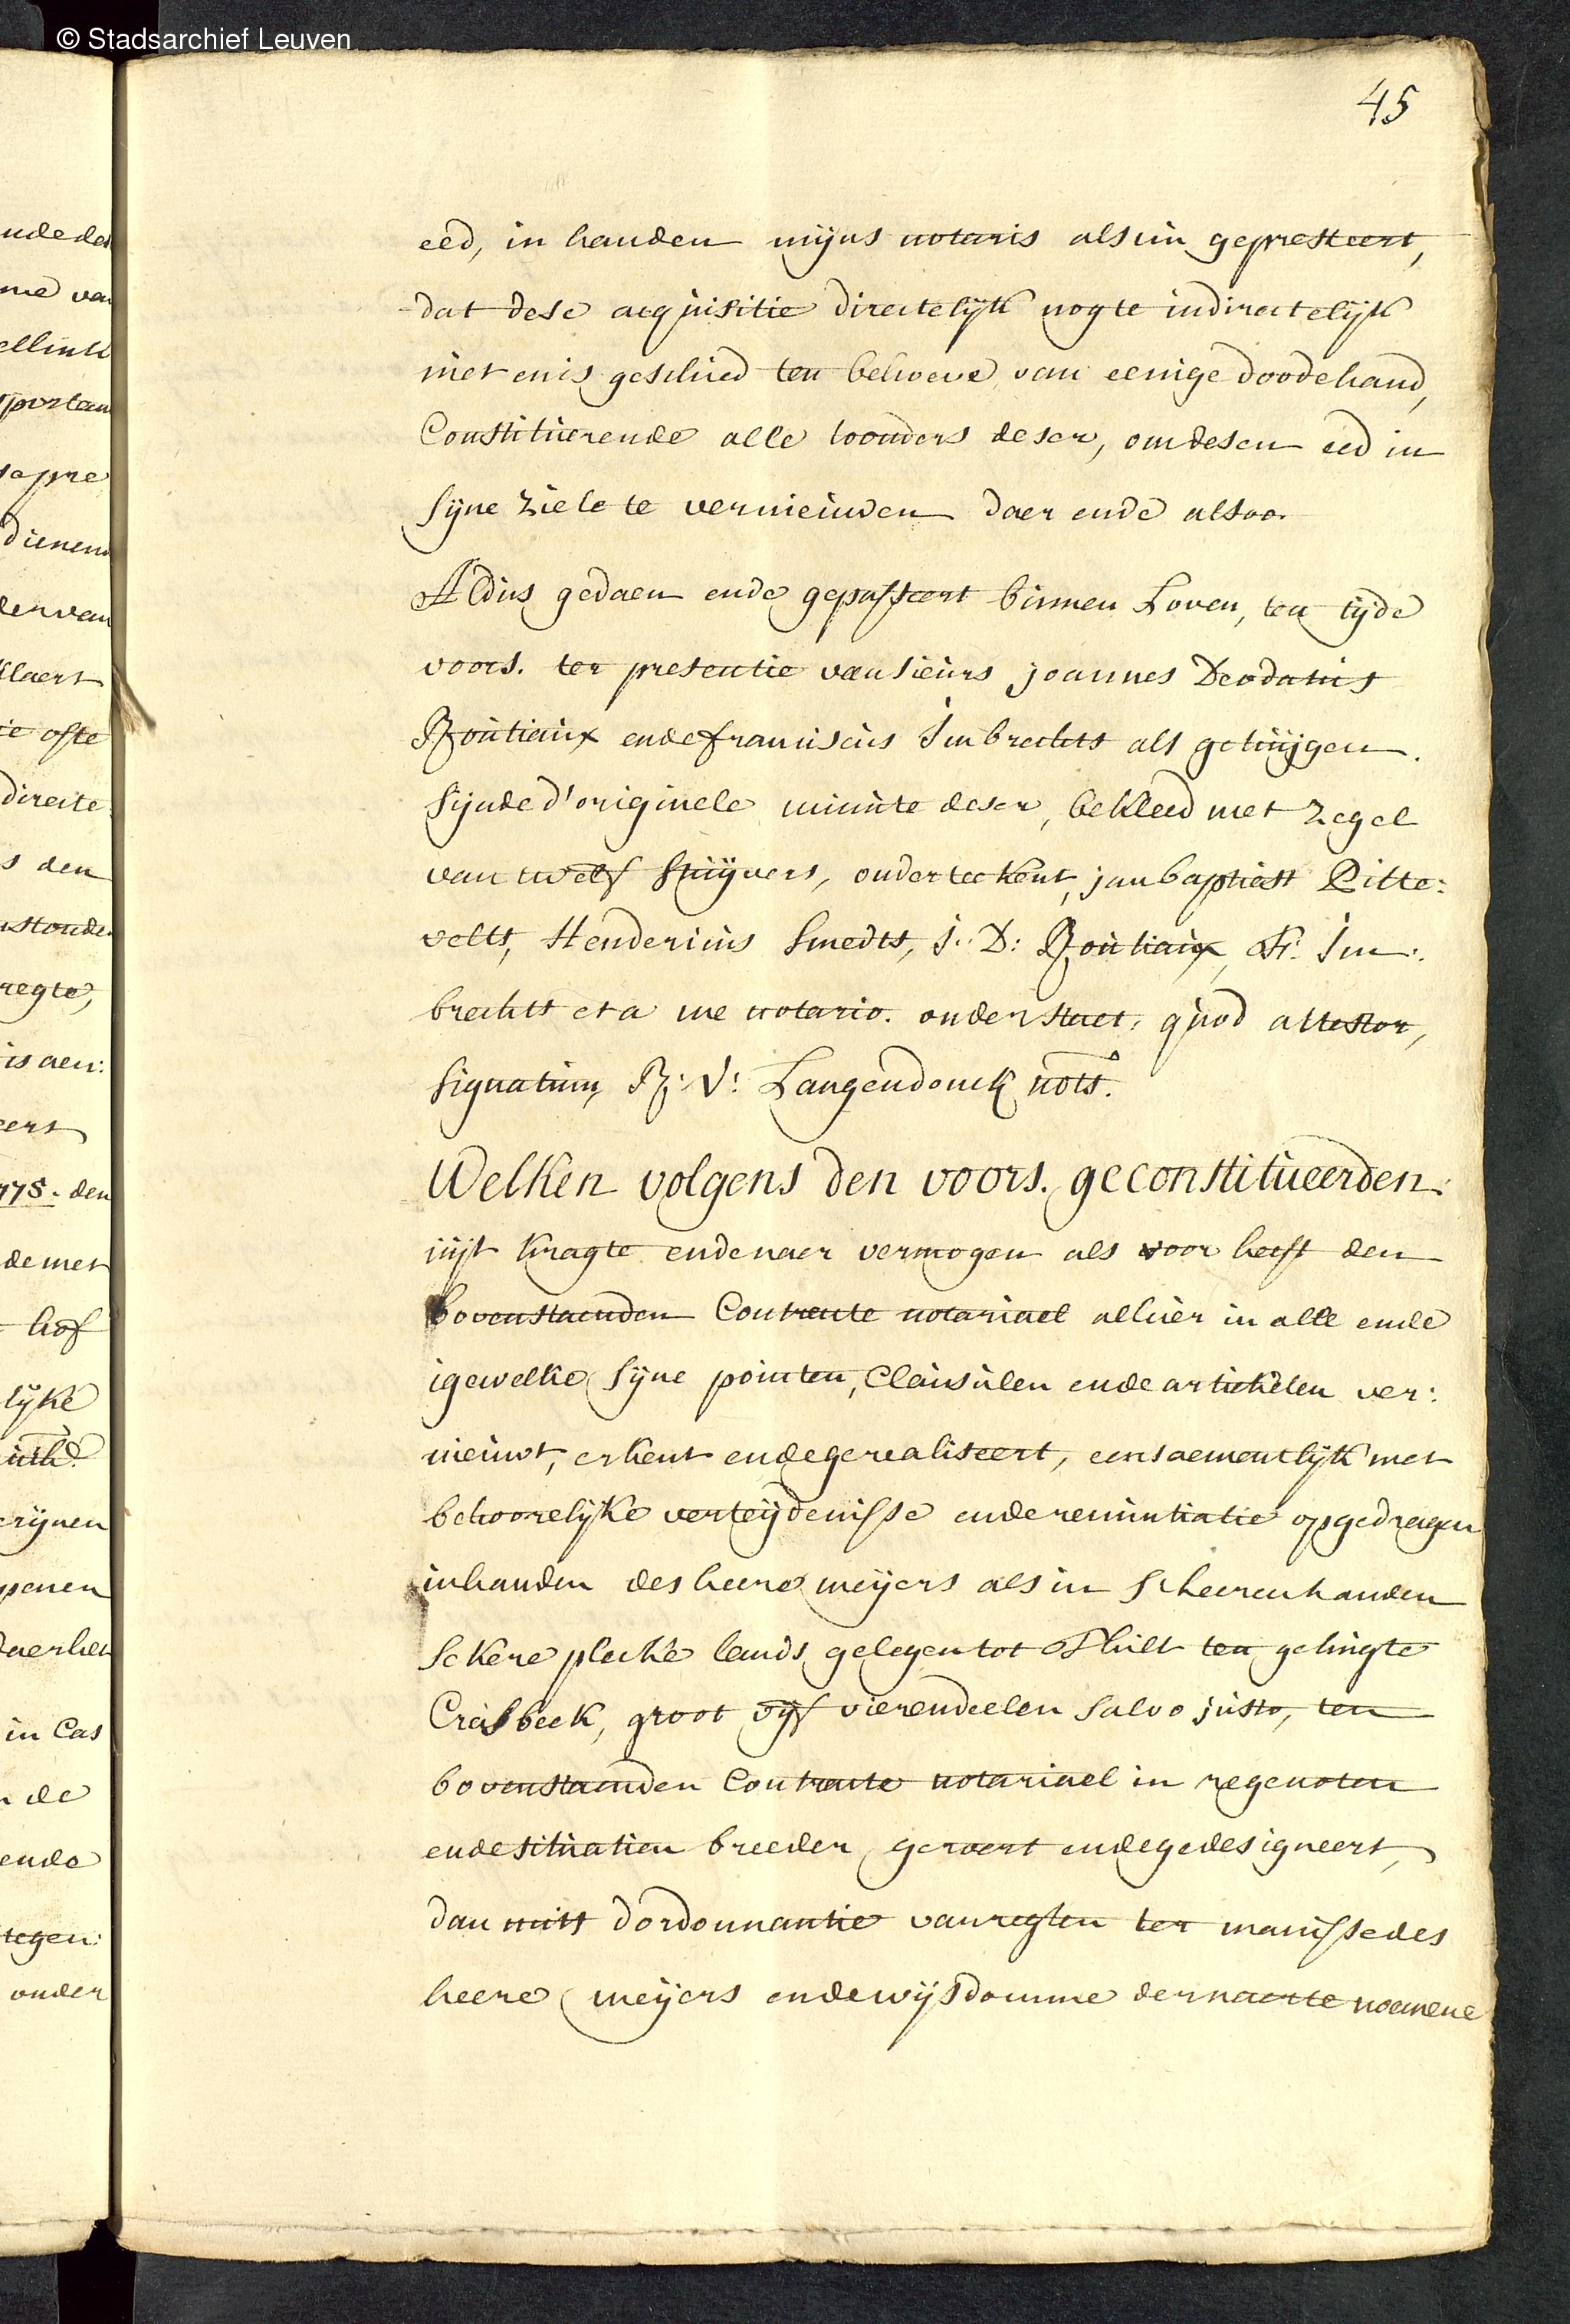 © Stadsarchief Leuven
45
eed, in handen mijns notaris alsnu gepresteert,
dat dese acquisitie directelijk nogte indirectelijk
niet en is geschied ten behoeve van eenige doodehand,
Constituerende alle toonders deser, om desen eed in
sijne ziele te vernieuwen daer ende alsoo.
Aldus gedaen ende gepasseert binnen Loven, ten tijde
voors. ter presentie van sieurs joannes Deodatus
Routiaux ende franciscus Imbrechts als getuijgen.
sijnde d'originele minute deser, bekleed met zegel
van twelf stuijvers, onderteekent, jan baptist Pitte:
velts, Hendericus Smedts, J: D: Routiaux, Fr: Im:
brechts et a me notario. onderstaet, quod attestor,
signatum, R: V: Langendonck nots.
Welken volgens den voors. geconstitueerden
uijt kragte ende naer vermogen als voor heeft den
bovenstaenden Contracte notariael alhier in alle ende
igewelke sijne pointen, Clausulen ende artickelen ver:
nieuwt, erkent ende gerealiseert, eensaementlijk met
behoorelijke verteijdenisse ende renuntiatie opgedragen
in handen des heere meijers als in sheeren handen
sekere plecke lands gelegen tot Thilt ten gehugte
Craesbeek, groot vijf vierendeelen salvo justo, ten
bovenstaenden Contracte notariael in regenoten
ende situatien breeder geroert ende gedesigneert,
dan mits d'ordonnantie van regten ter manisse des
heere meijers ende wijsdomme der naerte noemene
ende des
me van
ellinck
portan
sepre
dienen
der van
klaert
ie ofte
directe
s den
nstonde
regte,
is aen:
eert
775. den
de met
hof
lijke
crijnen
penen
daer het
in Cas
n de
ende
tegen:
onder